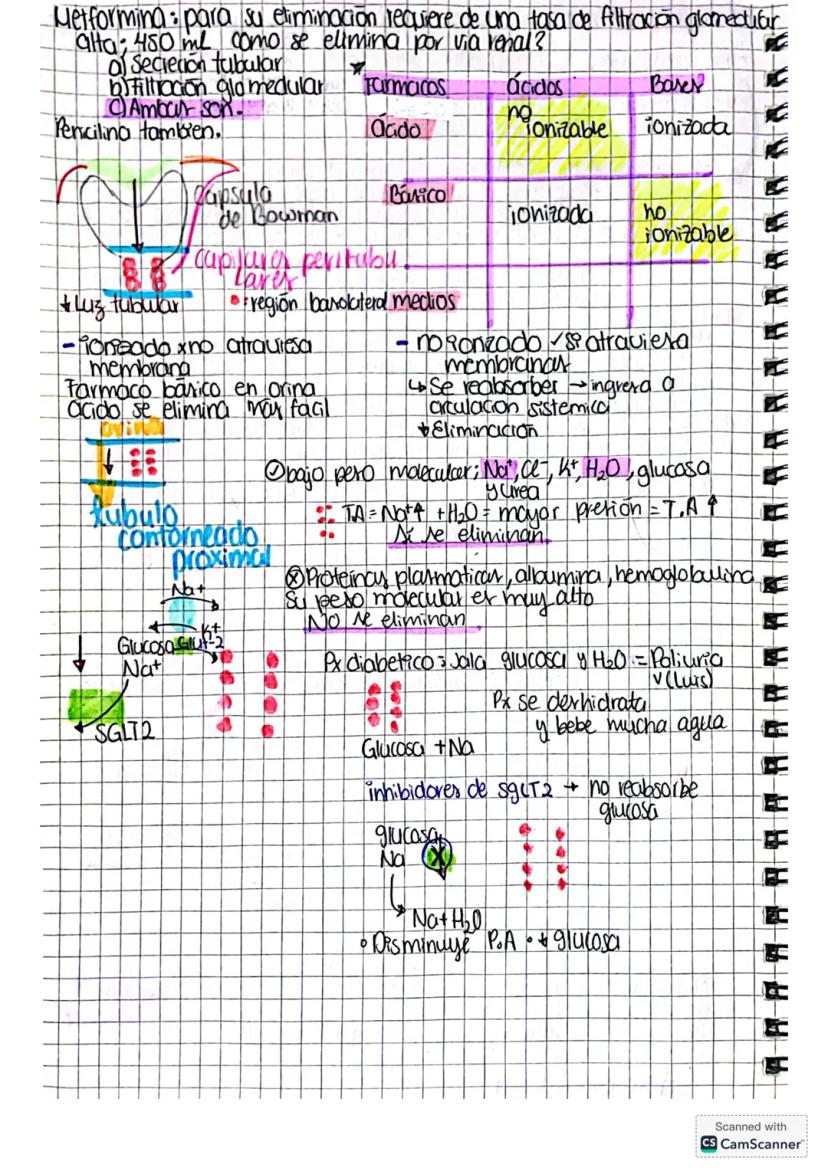 Metformina: para su eliminación requiere de una tasa de filtración glomedular
alta; 450 ml como se elimina por via renal?
a) Secreción tubular
b) filtración glomedular
c) Ambas son.
Penicilina tambien.
Farmacos ácidos Bases
Ácido no ionizable ionizada
Básico ionizada no ionizable
medios
Capsula
de Bowman
Capilares peritubu
lares
↓ Luz tubular
: región basolateral
- ionizado x no atraviesa
membrana
Farmaco básico en orina
ácido se elimina más facil
- no ionizado ✓ si atraviesa
membranas
↳ Se reabsorber → ingresa a
circulación sistemica
↓ Eliminación
orina
tubulo
contorneado
proximal
✓ bajo peso molecular; Na⁺, Cl⁻, K⁺, H₂O, glucosa
y urea
TA = Na⁺↑ + H₂O = mayor presión = T.A ↑
Si se eliminan
ⓧ Proteínas plasmaticas, albumina, hemoglobulina
su peso molecular es muy alto
NO se eliminan
Na⁺
K⁺
Glucosa Glut-2
Na⁺
SGLT2
Px diabetico: Jala glucosa y H₂O = Poliuria
v (Luis)
Px se deshidrata
y bebe mucha agua
Glucosa + Na
inhibidores de SGLT2 → no reabsorbe
glucosa
glucosa
Na X
Na + H₂O
• Disminuye P.A • ↓ glucosa
Scanned with
CS CamScanner